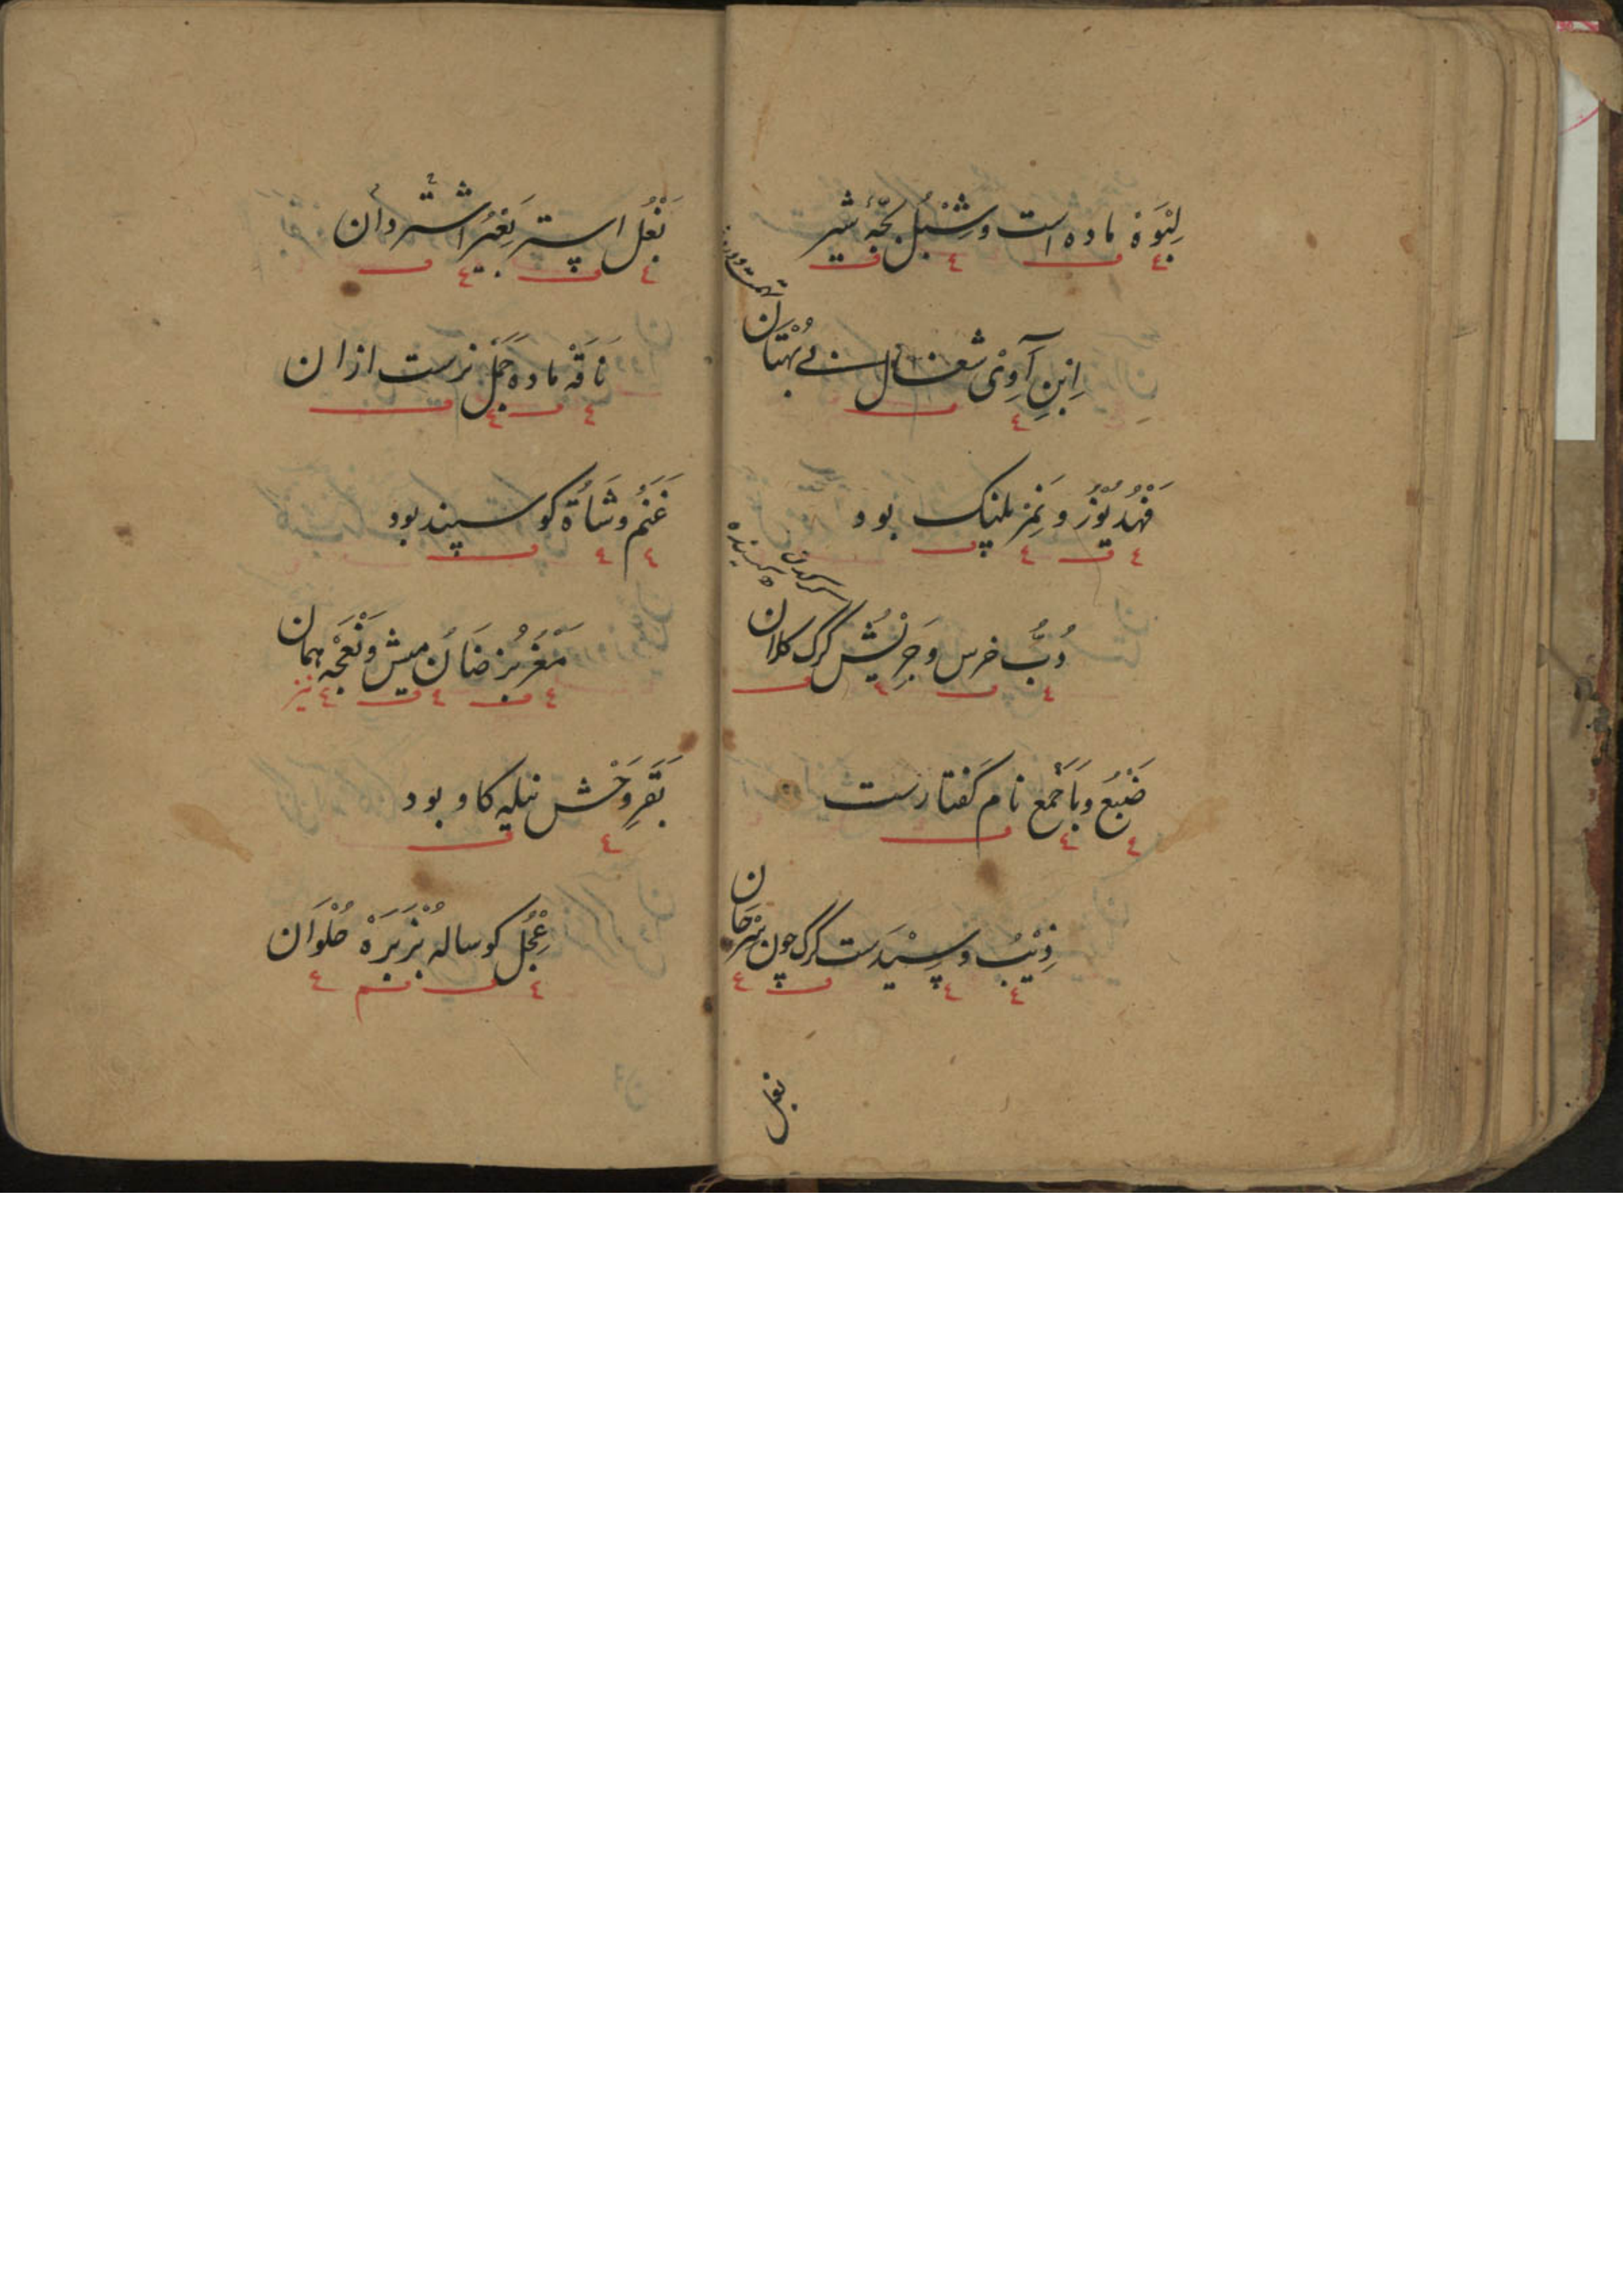 لِبْوَهْ ماده است و شِبْلُ بچّهٔ شیر
اِبْنِ آوٰی شغال بے بُهْتَان
فَهْدُ یُوْزُ و نَمِرْ پلنک بود
دُبُّ خرس و جِرْنِشُ کرک کلان
ضَبُعُ وبَاجَمع نام کفتارست
ذِیْبُ و سِیْدَست کرک چون سِرْحَان
بغل
بَغْلُ استر بَعِیْر اشتر دان
نَاقَهْ ماده جَمَلْ نرست ازان
غَنَمُ و شَاةُ کوسپند بود
مَعْزُ بز ضَأنُ میش و نَعْجَهْ همان
نیز
بَقَرِ وَحْش نیله کاو بود
عِجْلُ کوساله بُزْ بَرَهْ حُلْوَان